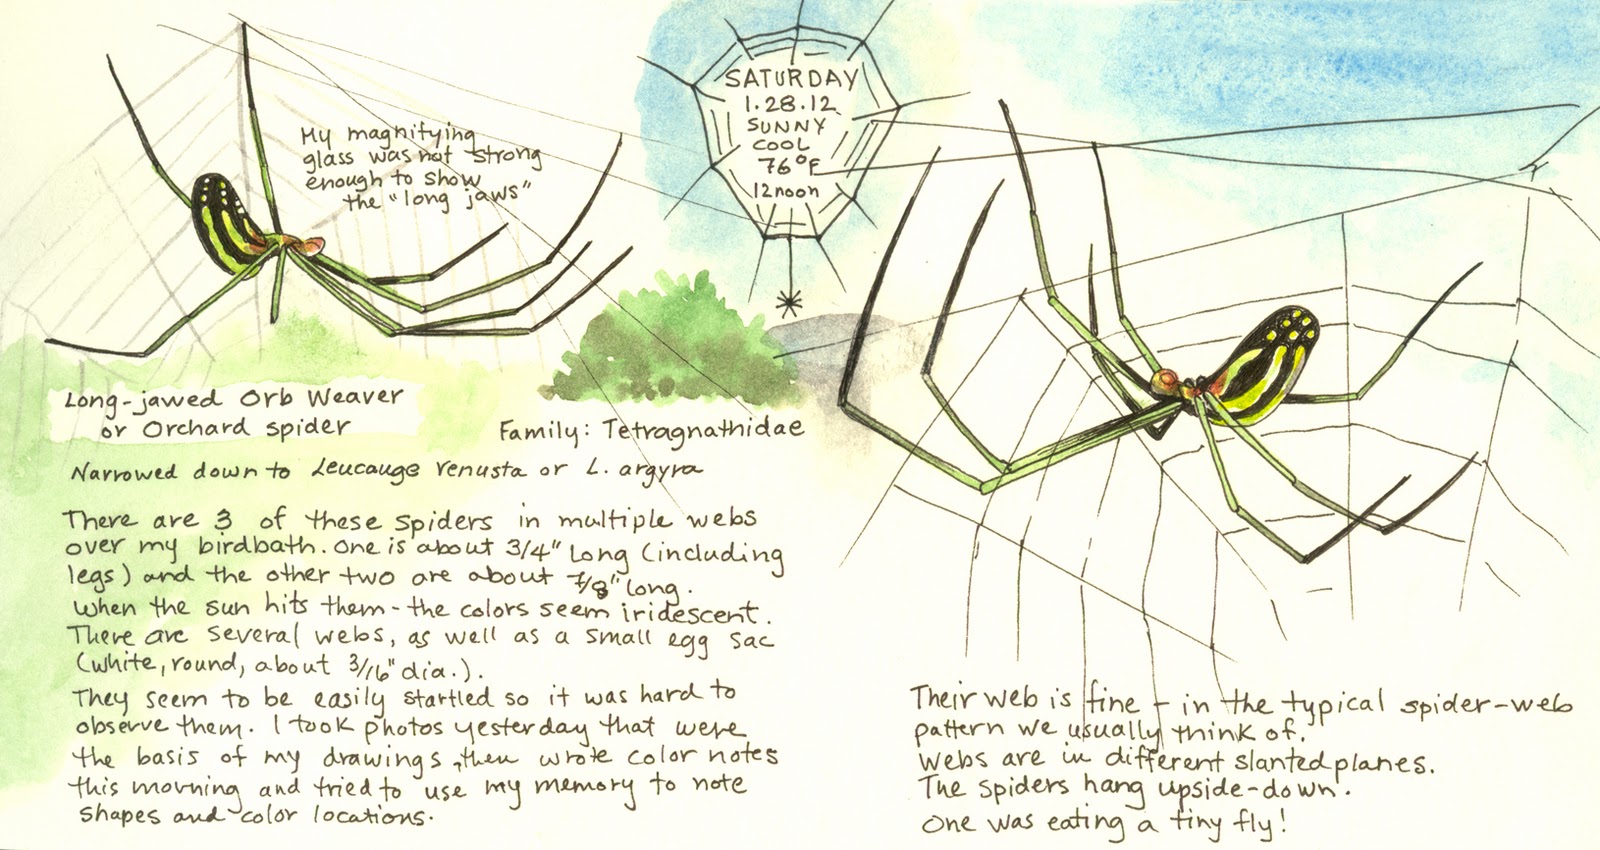 My magnifying
glass was not strong
enough to show
the "long jaws"
SATURDAY
1.28.12
SUNNY
COOL
76°F
12noon
Long-jawed Orb Weaver
or Orchard spider
Family: Tetragnathidae
Narrowed down to Leucauge venusta or L. argyra
There are 3 of these spiders in multiple webs
over my birdbath. One is about 3/4" long (including
legs) and the other two are about 7/8" long.
When the sun hits them - the colors seem iridescent.
There are several webs, as well as a small egg sac
(white, round, about 3/16" dia.).
They seem to be easily startled so it was hard to
observe them. I took photos yesterday that were
the basis of my drawings, then wrote color notes
this morning and tried to use my memory to note
shapes and color locations.
Their web is fine - in the typical spider-web
pattern we usually think of.
Webs are in different slanted planes.
The spiders hang upside-down.
One was eating a tiny fly!